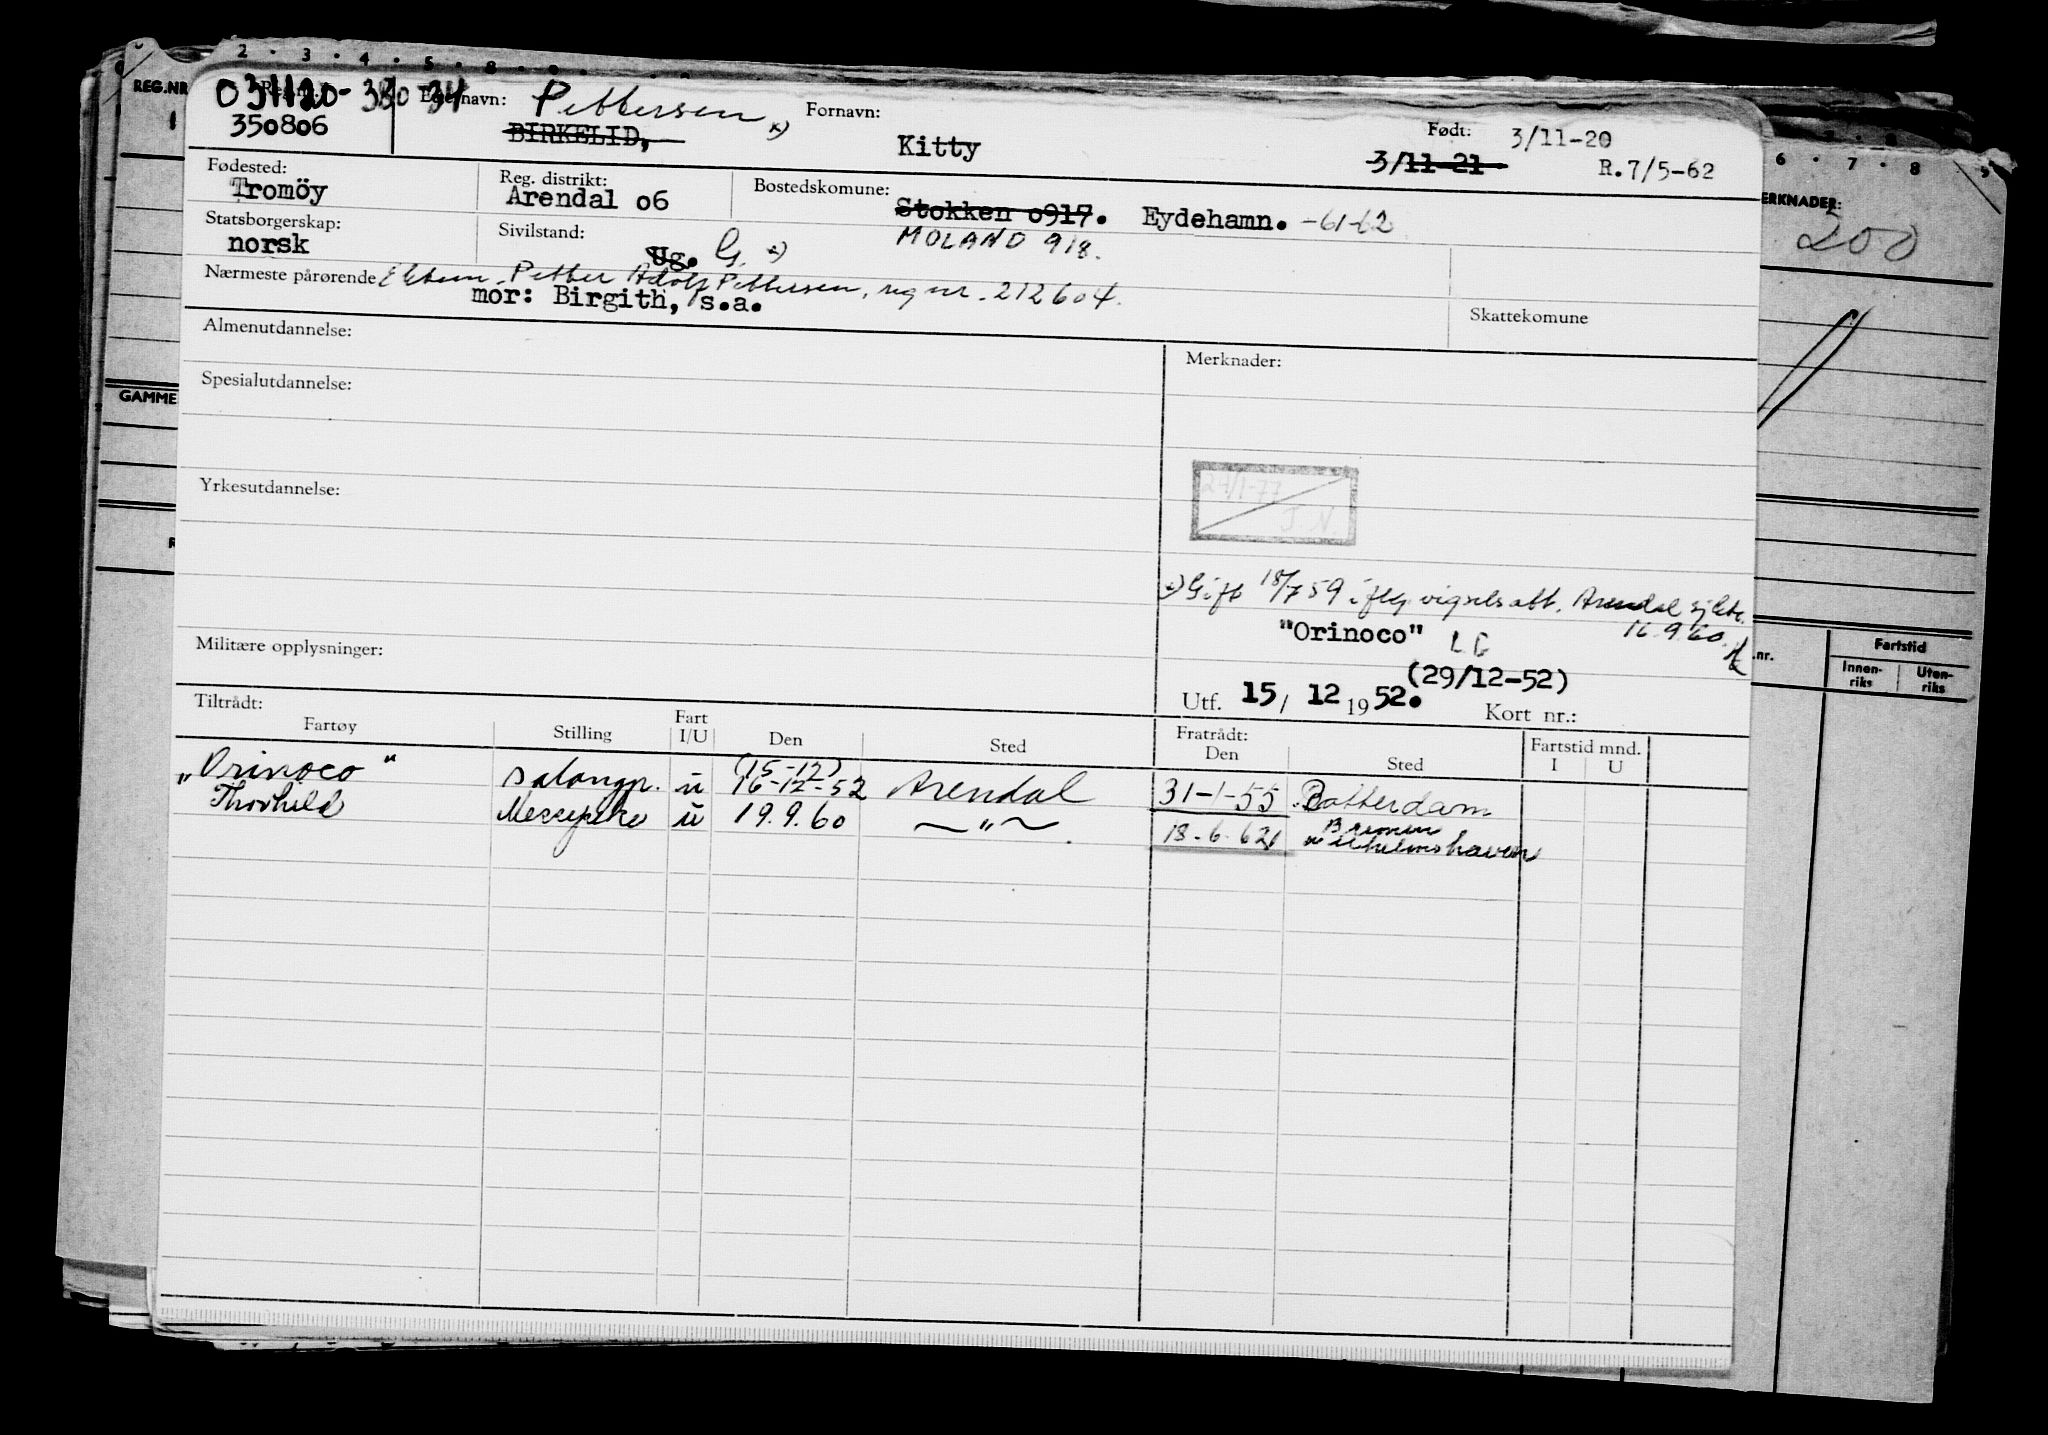 2 · 3 · 4 · 5 · 8 · 9
REG.NR
031120-
350806
Etternavn: Pettersen x)
BIRKELID,
Fornavn:
Kitty
Født: 3/11-20
3/11-21 R.7/5-62
6 · 7 · 8
Fødested:
Tromöy
Reg. distrikt:
Arendal o6
Bostedskomune:
Stokken o917. Eydehamn. -61-62
MERKNADER:
200
Statsborgerskap:
norsk
Sivilstand:
Ug. G. x)
MOLAND 918.
Nærmeste pårørende Ektem. Petter Adolf Pettersen, reg nr. 212604.
mor: Birgith, s.a.
Skattekomune
Almenutdannelse:
Merknader:
Spesialutdannelse:
GAMME
Yrkesutdannelse:
27/1-77
J.N.
x) Gift 18/7 59 iflg. vigselsatt. Arendal
16.9.60.
"Orinoco" LG
(29/12-52)
Militære opplysninger:
Utf. 15/ 12 1952. Kort nr.:
nr.
Fartstid
Innen-
riks
Uten-
riks
Tiltrådt:
Fartøy Stilling Fart
I/U Den Sted
Fratrådt:
Den Sted
Fartstid mnd.
I U
(15-12)
"Orinoco" Salongp. u 16-12-52 Arendal 31-1-55 Rotterdam
Thorhild Messepike u 19.9.60 —"— 18-6-62 Bremen
Wilhelmshaven